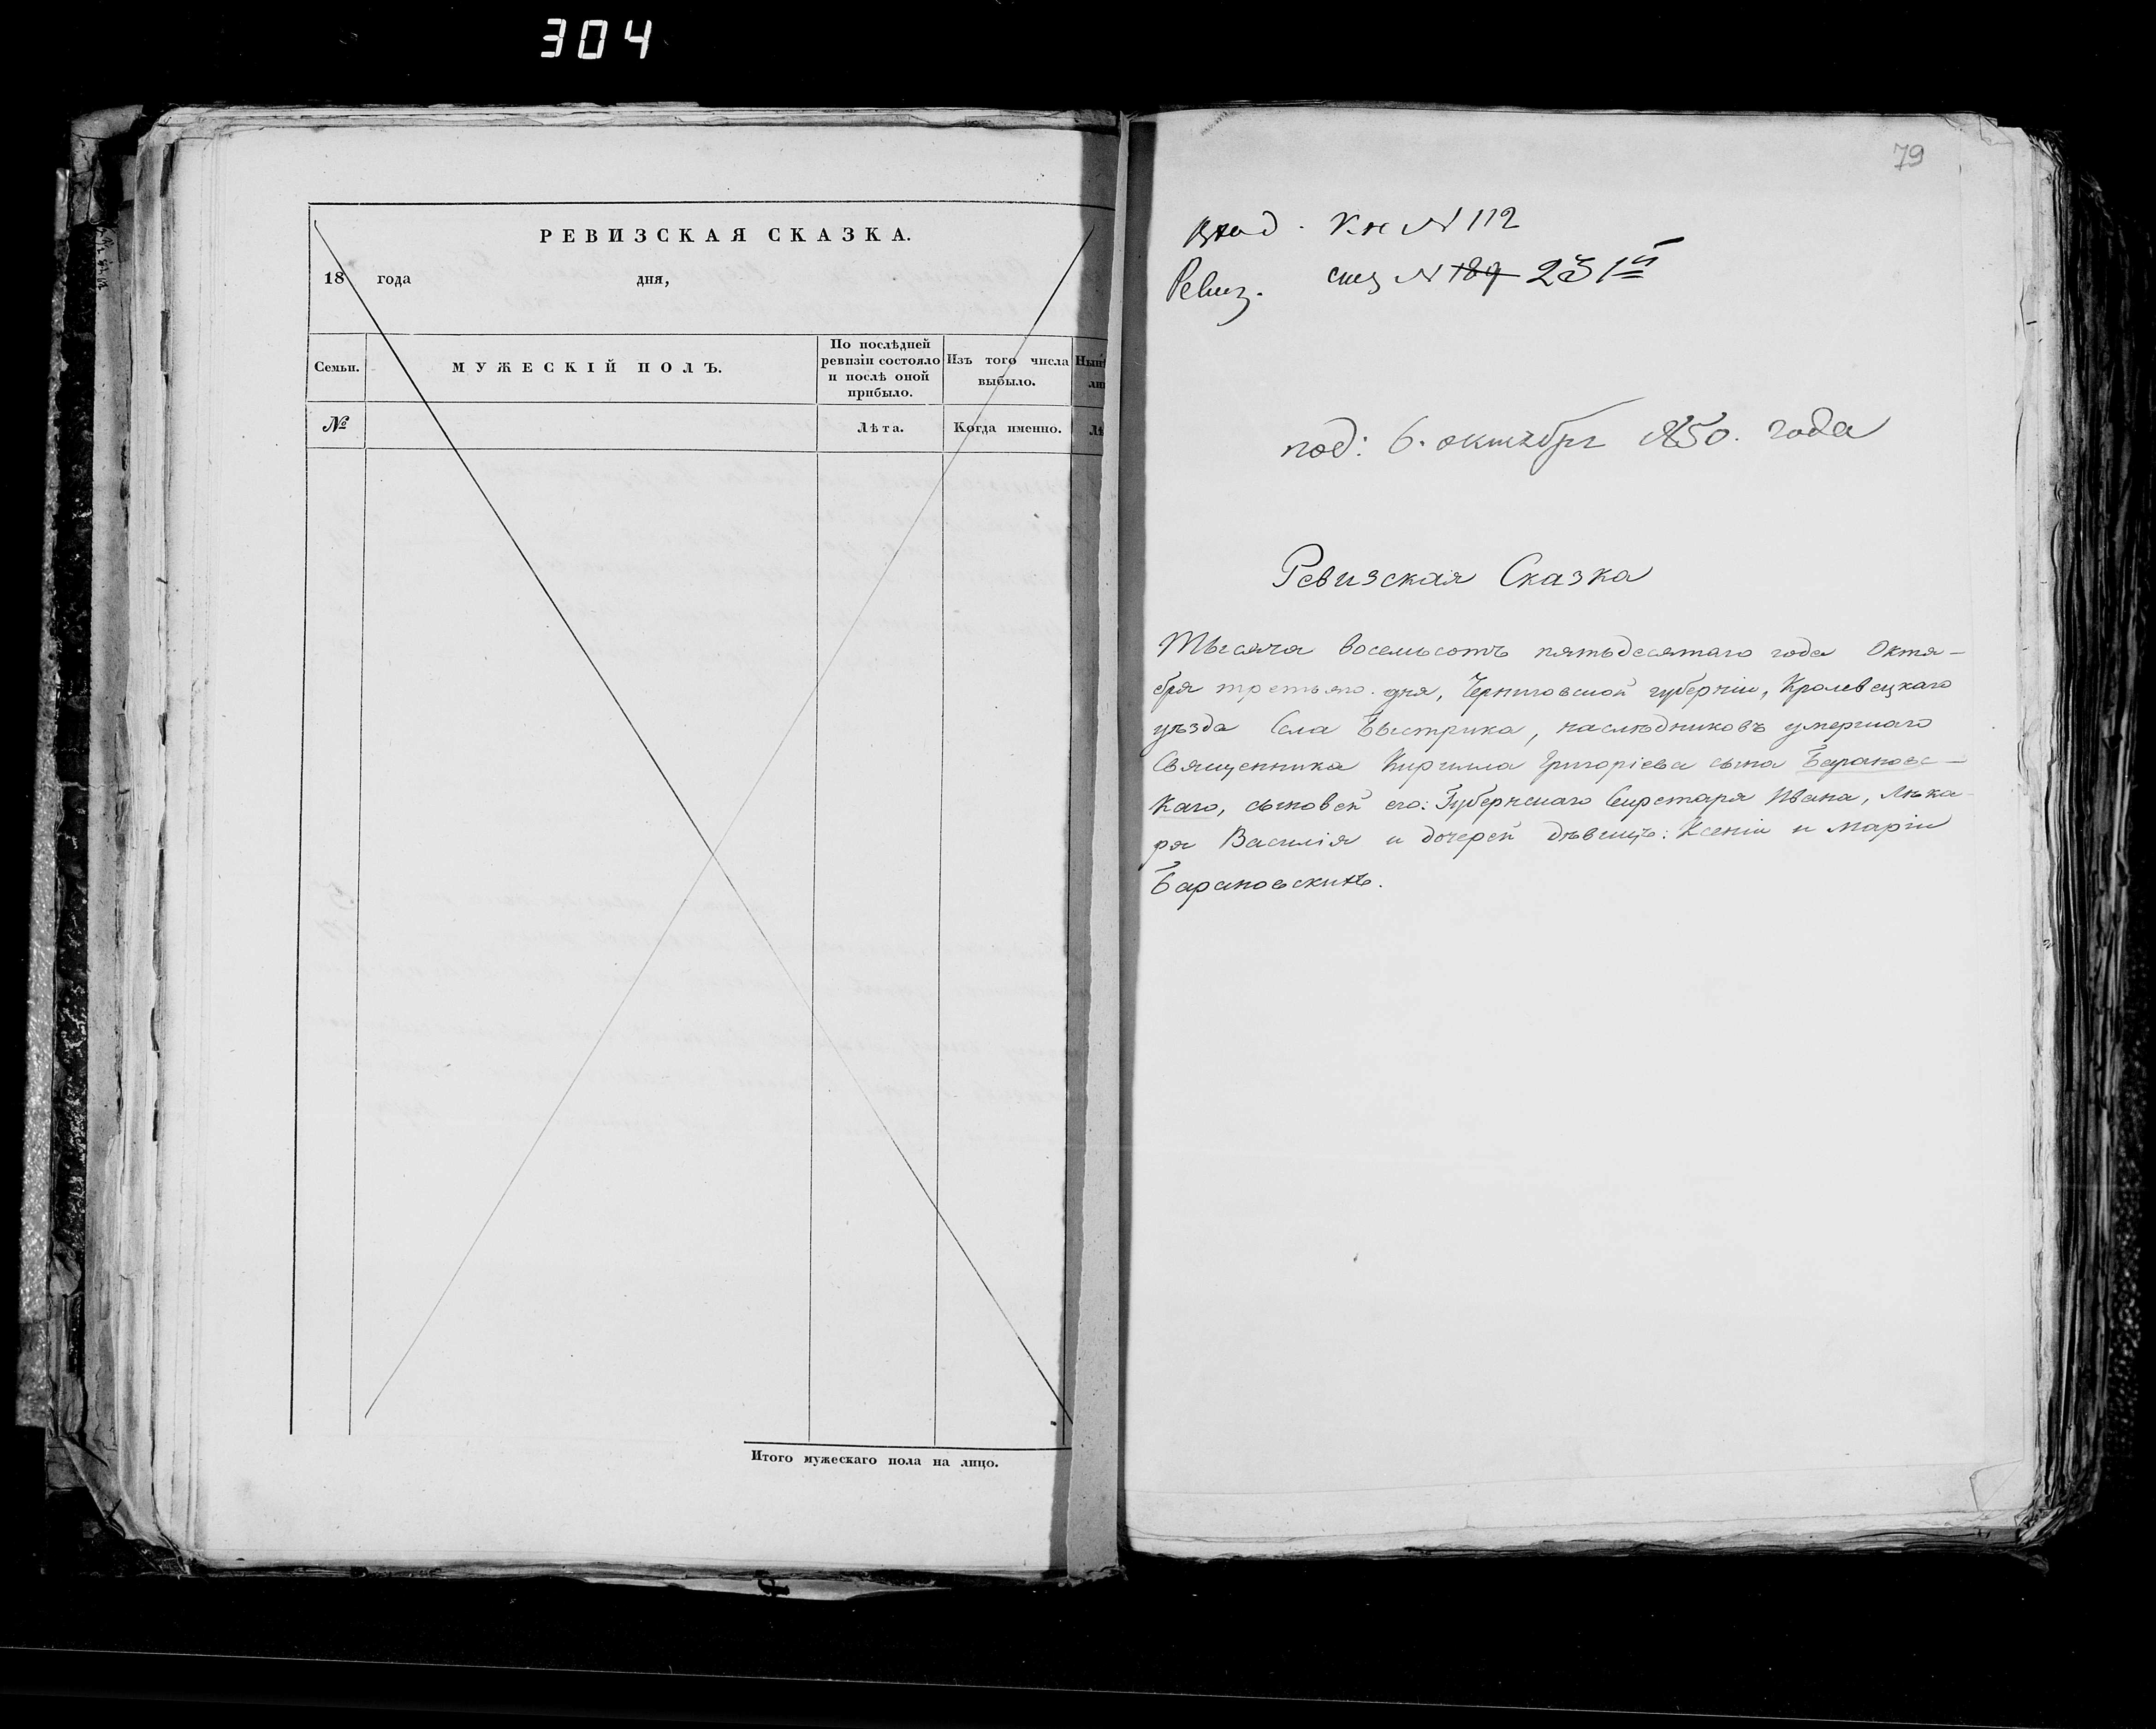 304
РЕВИЗСКАЯ СКАЗКА.
18 года дня,
Семьи.
МУЖЕСКІЙ ПОЛЪ.
По послѣдней
ревизіи состояло
и послѣ оной
прибыло.
Изъ того числа
выбыло.
№
Лѣта.
Когда именно.
Итого мужескаго пола на лицо.
79
Вход. Кн N 112
Ревиз. скз N 189 231й
под: 6. октября 1850. года
Ревизская Сказка
Тысяча восемьсотъ пятьдесятаго года Октя-
бря третьяго дня, Черниговской губерніи, Кролевецкаго
уѣзда Села Быстрика, наслѣдниковъ умершаго
Священника Кирилла Григоріева сына Барановс-
каго, сыновей его: Губернскаго Секретаря Ивана, Лѣка-
ря Василія и дочерей дѣвицъ: Ксеніи и Маріи
Барановскихъ.